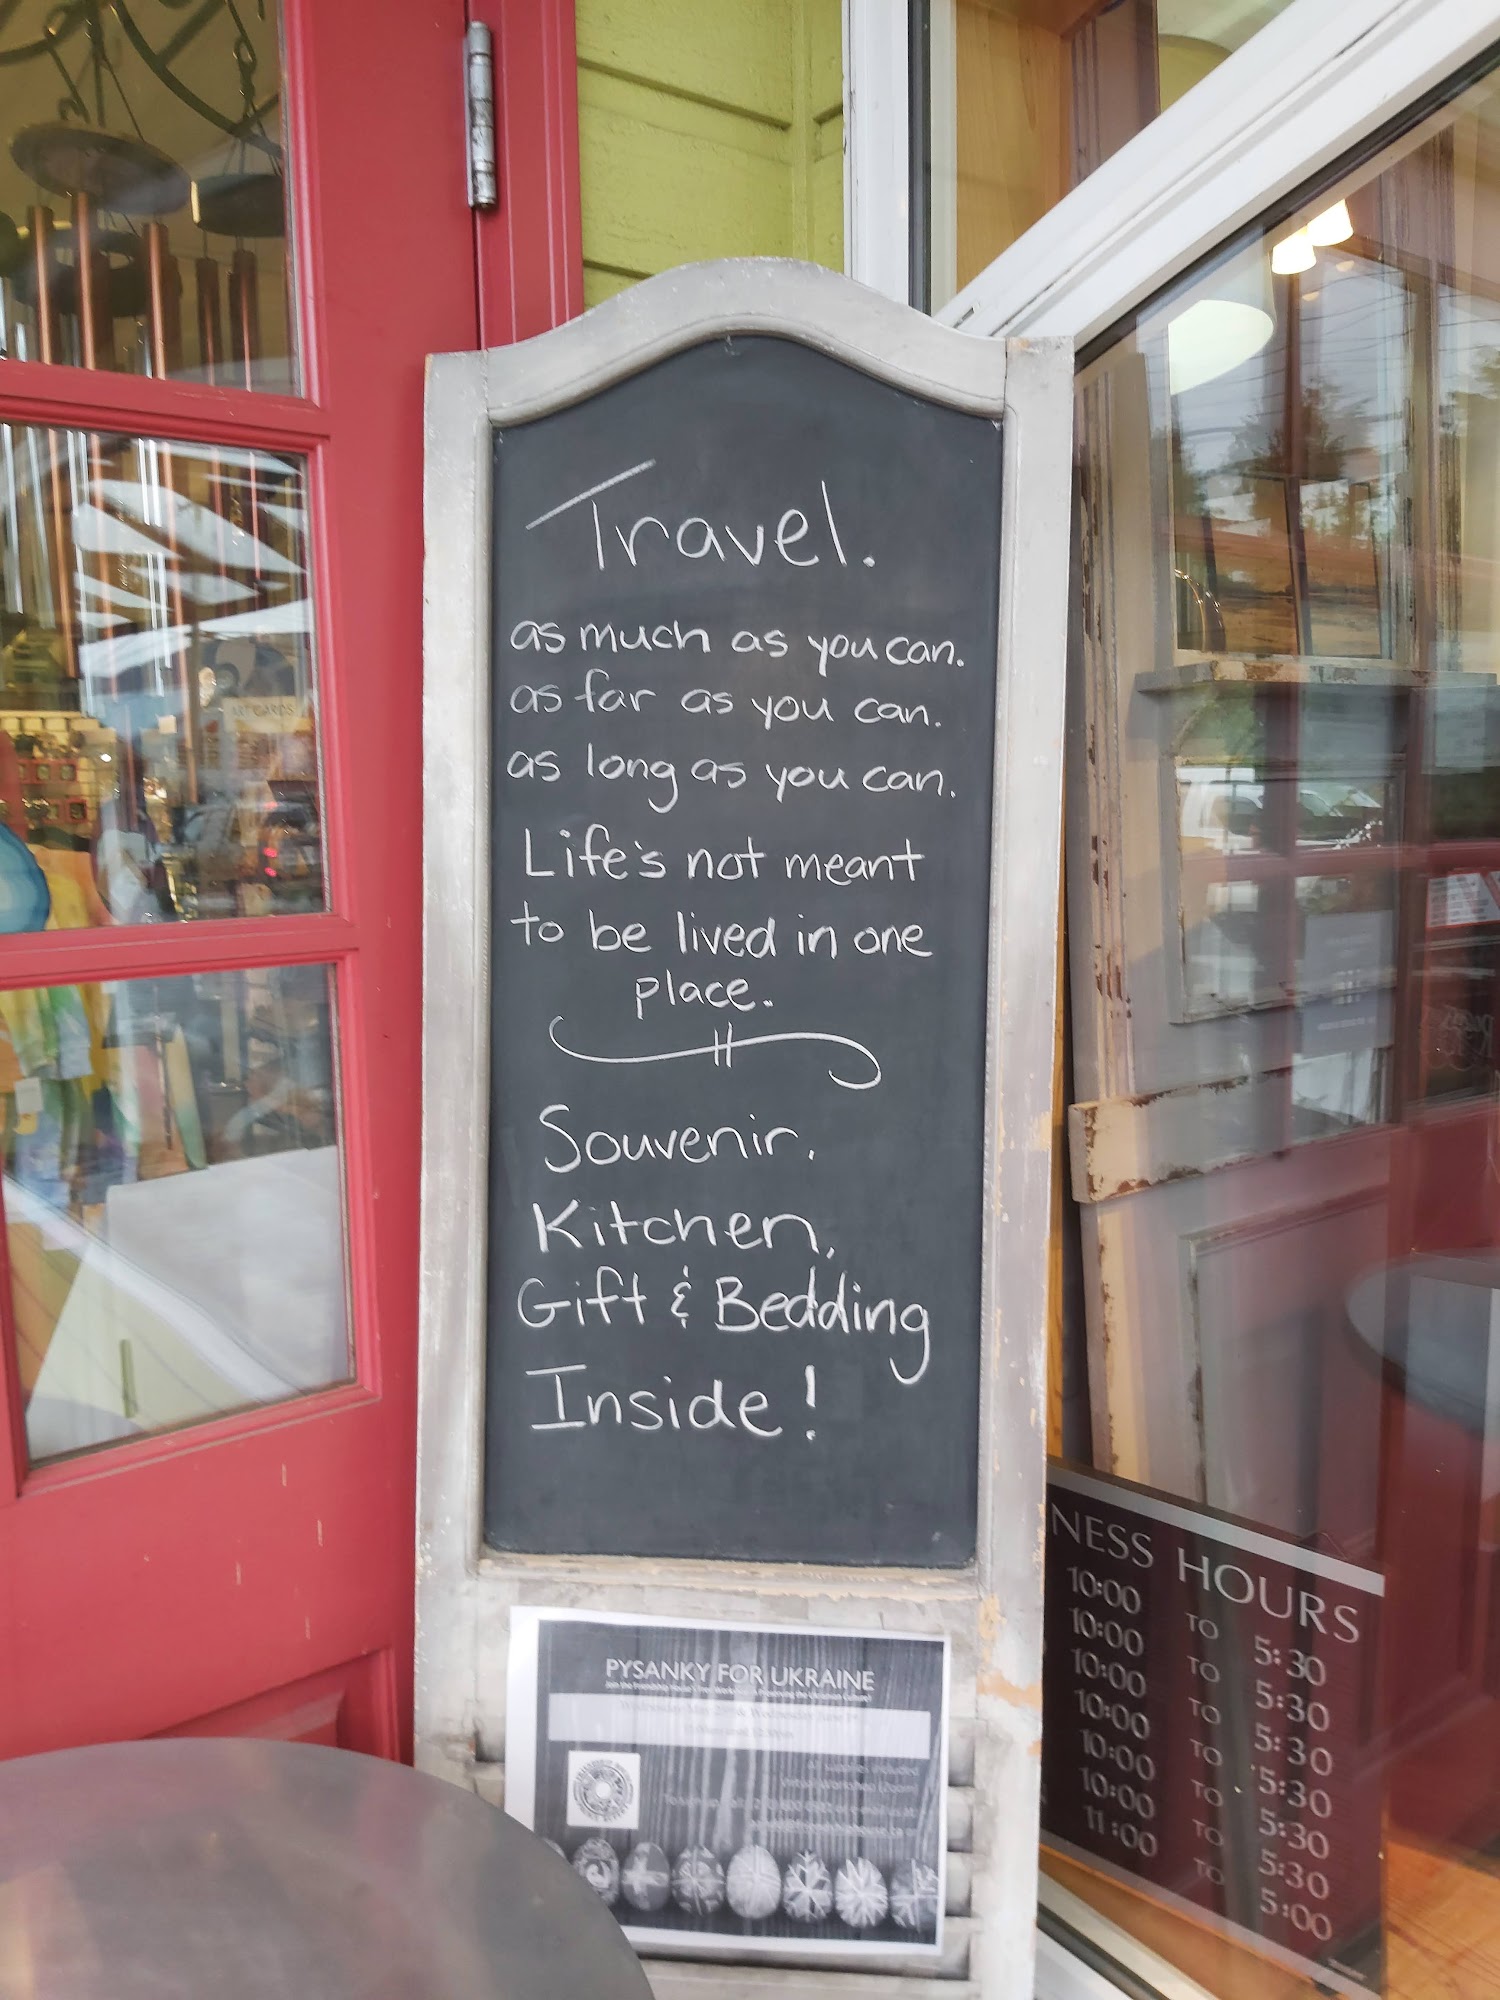 Travel.
as much as you can.
as far as you can.
as long as you can.
Life's not meant
to be lived in one
place.
Souvenir,
Kitchen,
Gift & Bedding
Inside!
PYSANKY FOR UKRAINE
NESS HOURS
10:00 TO 5:30
10:00 TO 5:30
10:00 TO 5:30
10:00 TO 5:30
10:00 TO 5:30
10:00 TO 5:30
11:00 TO 5:00
ART CARDS